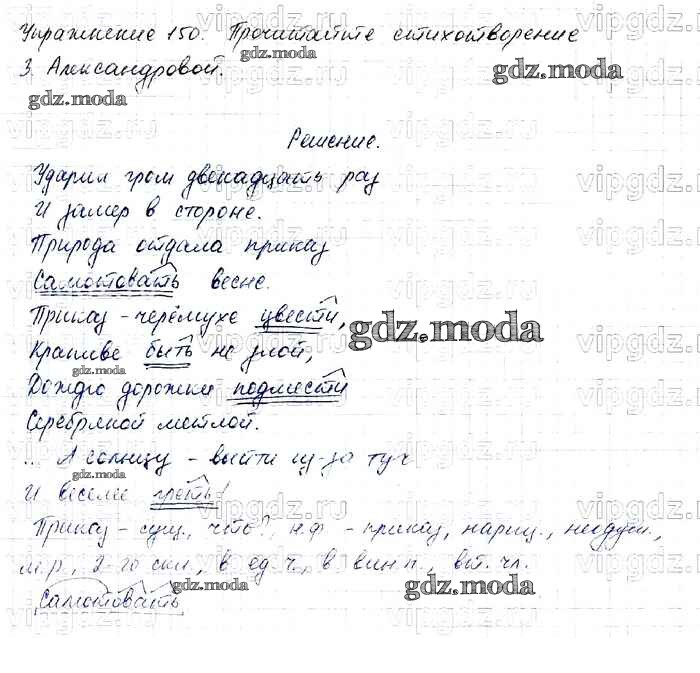 Упражнение 150. Прочитайте стихотворение
З. Александровой.
gdz.moda
gdz.moda
Решение.
Ударил гром двенадцать раз
И замер в стороне.
Природа отдала приказ
Салютовать весне.
Приказ - черёмухе цвести,
gdz.moda
Крапиве быть не злой,
gdz.moda
Дождю дорожки подмести
Серебряной метлой.
... А солнцу - выйти из-за туч
gdz.moda
И веселее греть!
Приказ - сущ., что?, н.ф. - приказ, нариц., неодуш.,
м.р., 2-го скл., в ед.ч., в вин.п., вт. чл.
gdz.moda
gdz.moda
Салютовать
vipgdz.ru